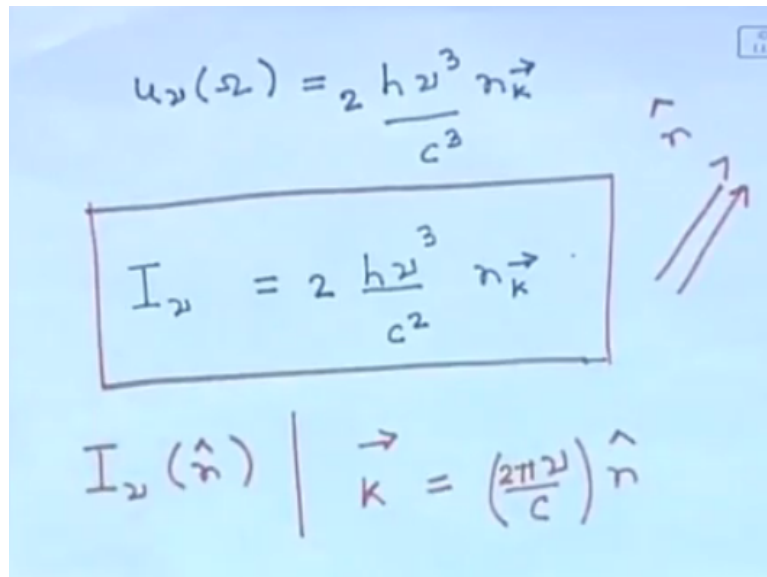 u_ν(Ω) = 2 hν³/c³ n_k⃗
n̂
I_ν = 2 hν³/c² n_k⃗
I_ν(n̂) | k⃗ = (2πν/c) n̂